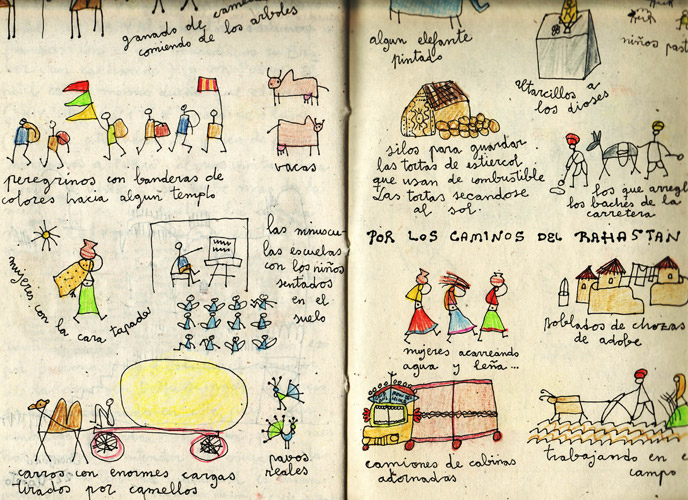 ganado de
comiendo de los arboles
peregrinos con banderas de
colores hacia algun templo
vacas
mujeres con la cara tapada
las minuscu-
las escuelas
con los niños
sentados
en el
suelo
carros con enormes cargas
tirados por camellos
pavos
reales
algun elefante
pintado
Altarcillos a
los dioses
niños
silos para guardar
las tortas de estiercol
que usan de combustible
Las tortas secandose
al sol.
los que
los baches de la
carretera
POR LOS CAMINOS DEL RAHASTAN
mujeres acarreando
agua y leña...
poblados de chozas
de adobe
camiones de cabinas
adornadas
trabajando en
campo